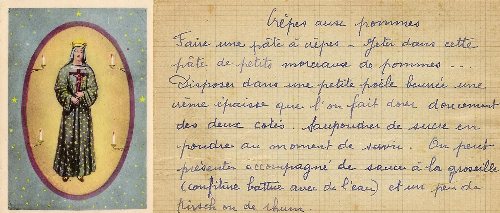 Crêpes aux pommes
Faire une pâte à crêpes - Jeter dans cette
pâte de petits morceaux de pommes - ..
Disposer dans une petite poêle beurrée une
crème épaisse que l'on fait dorer doucement
des deux cotés. Saupoudrer de sucre en
poudre au moment de servir. On peut
présenter accompagné de sauce à la groseille
(confiture battue avec de l'eau) et un peu de
kirsch ou de rhum.